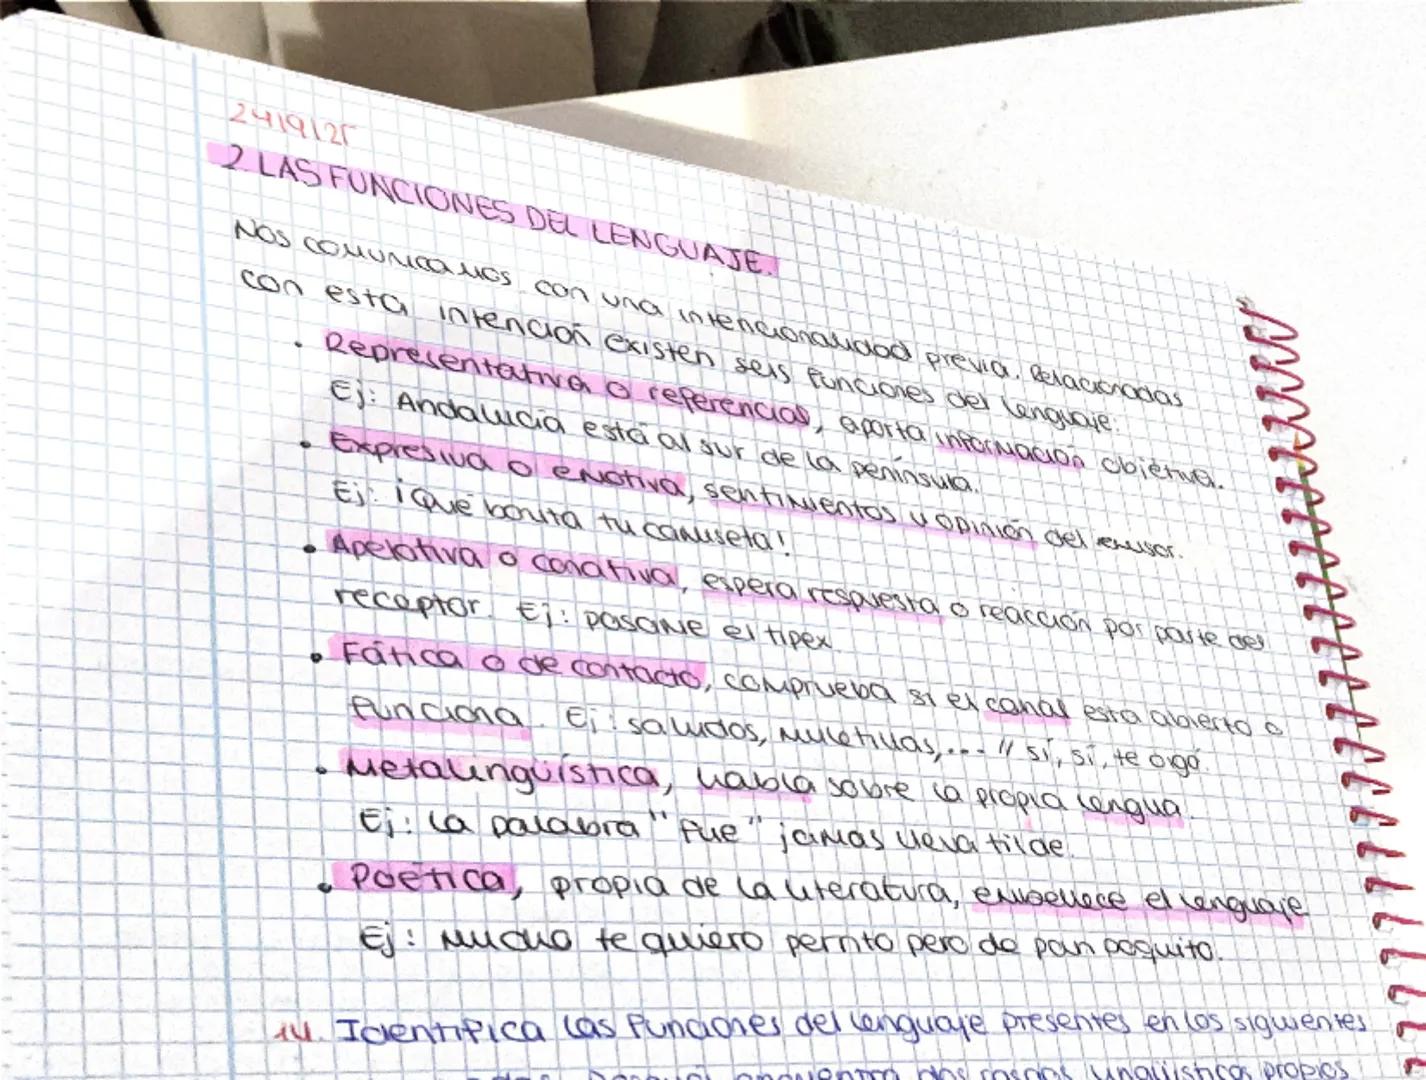 24/9/25
2 LAS FUNCIONES DEL LENGUAJE.
Nos comunicamos con una intencionalidad previa. Relacionadas
con esta intención existen seis funciones del lenguaje:
• Representativa o referencial, aporta información objetiva.
Ej: Andalucía está al sur de la península.
• Expresiva o emotiva, sentimientos y opinión del emisor.
Ej: ¡Qué bonita tu camiseta!
• Apelativa o conativa, espera respuesta o reacción por parte del
receptor. Ej: pasame el tipex.
• Fática o de contacto, comprueba si el canal esta abierto o
funciona. Ej: saludos, muletillas,... // sí, sí, te oigo.
• Metalingüística, habla sobre la propia lengua.
Ej: la palabra "fue" jamas lleva tilde.
• Poética, propia de la literatura, embellece el lenguaje
Ej: Mucho te quiero perrito pero de pan poquito.
14. Identifica las funciones del lenguaje presentes en los siguientes
Después encuentra dos rasgos lingüísticos propios